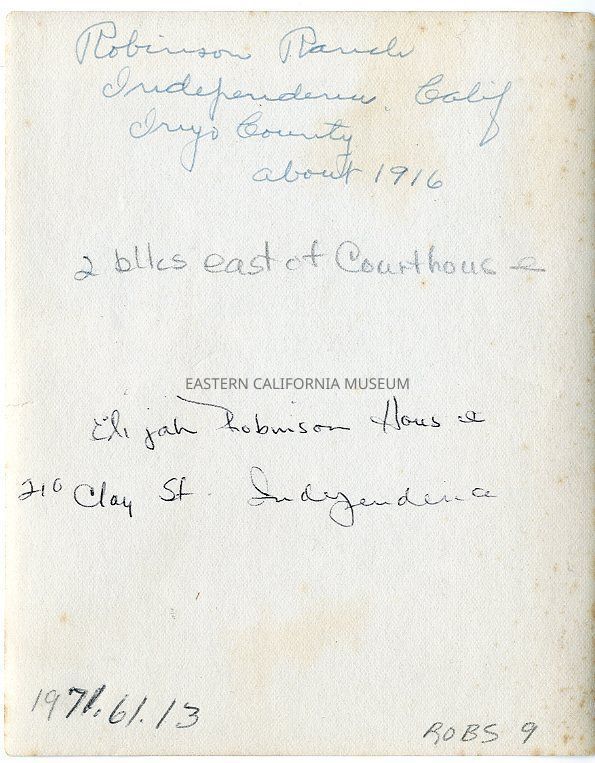 Robinson Ranch
Independence, Calif
Inyo County
about 1916
2 blks east of Courthouse
EASTERN CALIFORNIA MUSEUM
Elijah Robinson House
210 Clay St. Independence
1971.61.13
ROBS 9